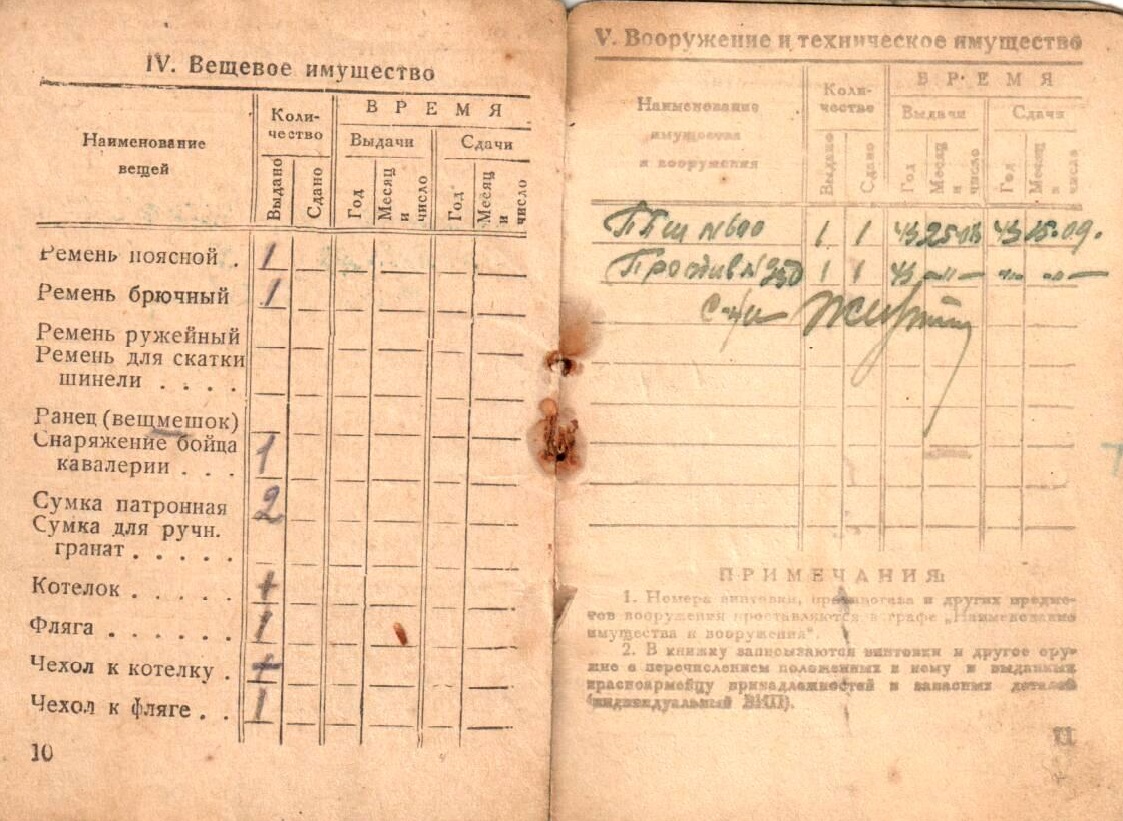 IV. Вещевое имущество
Наименование
вещей
Коли-
чество
ВРЕМЯ
Выдачи
Сдачи
Выдано
Сдано
Год
Месяц
и
число
Год
Месяц
и
число
Ремень поясной . 1
Ремень брючный 1
Ремень ружейный
Ремень для скатки
шинели . . . .
Ранец (вещмешок)
Снаряжение бойца
кавалерии . . . 1
Сумка патронная 2
Сумка для ручн.
гранат . . . . .
Котелок . . . . . +
Фляга . . . . . . 1
Чехол к котелку . +
Чехол к фляге . . 1
10
V. Вооружение и техническое имущество
Наименование
имущества
и вооружения
Коли-
чество
ВРЕМЯ
Выдачи
Сдачи
Выдано
Сдано
Год
Месяц
и
число
Год
Месяц
и
числа
ППш №600 1 1 43 25.08 43 15.09.
Против №950 1 1 43 —"— —"— —"—
ПРИМЕЧАНИЯ:
1. Номера винтовки, противогаза и других предме-
тов вооружения проставляются в графе „Наименование
имущества и вооружения“.
2. В книжку записываются винтовки и другое ору-
жие с перечислением положенных к нему и выданных
красноармейцу принадлежностей и запасных деталей
(индивидуальный ЗИП).
11